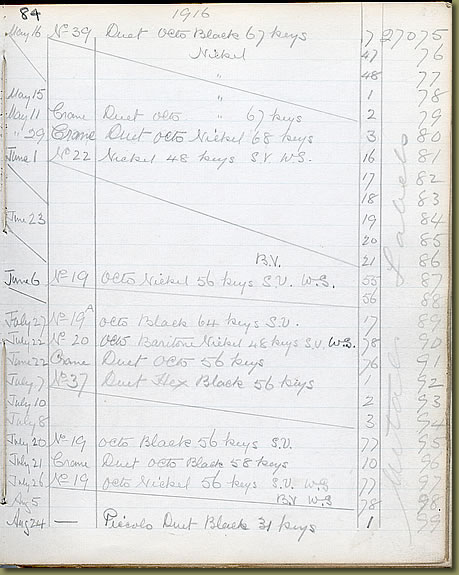 84 1916
May 16 No 39 Duet Octo Black 67 keys 17 27075
Nickel 47 76
" 48 77
May 15 " 1 78
May 11 Crane Duet octo " 67 keys 2 79
" 29 Crane Duet octo Nickel 68 keys 3 80
June 1 No 22 Nickel 48 keys S.V. W.S. 16 81
17 82
18 83
June 23 19 84
20 85
B.V. 21 86
June 6 No 19 octo Nickel 56 keys S.V. W.S. 55 87
56 88
July 27 No 19A octo Black 64 keys S.V. 17 89
July 22 No 20 octo Baritone Nickel 48 keys S.V. W.S. 78 90
June 22 Crane Duet octo 56 keys 76 91
July 7 No 37 Duet Hex Black 56 keys 1 92
July 10 2 93
July 8 3 94
July 20 No 19 octo Black 56 keys S.V. 77 95
July 21 Crane Duet octo Black 58 keys 10 96
July 26 No 19 octo Nickel 56 keys S.V. W.S. 77 97
Aug 5 B.V. W.S 78 98
Aug 24 — Piccolo Duet Black 31 keys 1 99
Labels